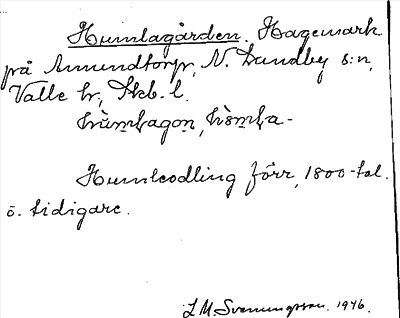 Humlagården. Hagemark
på Amundtorp, N. Lundby s:n,
Valle hr, Skb. l.
Humleodling förr, 1800-tal.
o. tidigare.
L M. Svenungsson. 1946.